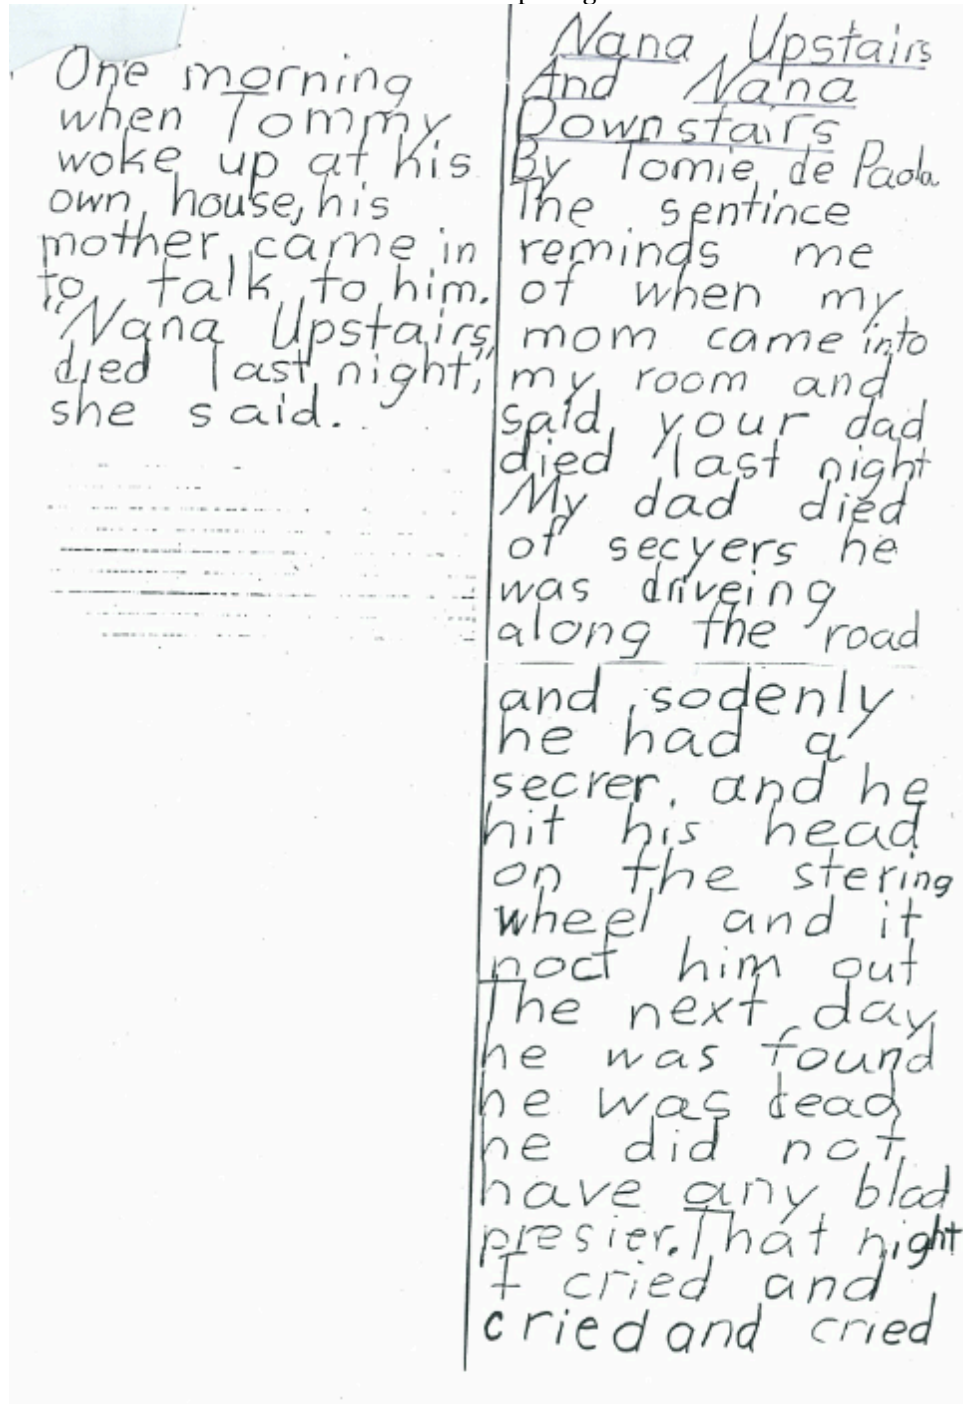 One morning
when Tommy
woke up at his
own house, his
mother came in
to talk to him.
"Nana Upstairs
died last night,"
she said.
Nana Upstairs
And Nana
Downstairs
By Tomie de Paola
The sentince
reminds me
of when my
mom came into
my room and
said your dad
died last night
My dad died
of secyers he
was driveing
along the road
and sodenly
he had a
secrer. and he
hit his head
on the stering
wheel and it
noct him out
The next day
he was found
he was dead
he did not
have any blod
presier. That night
I cried and
cried and cried